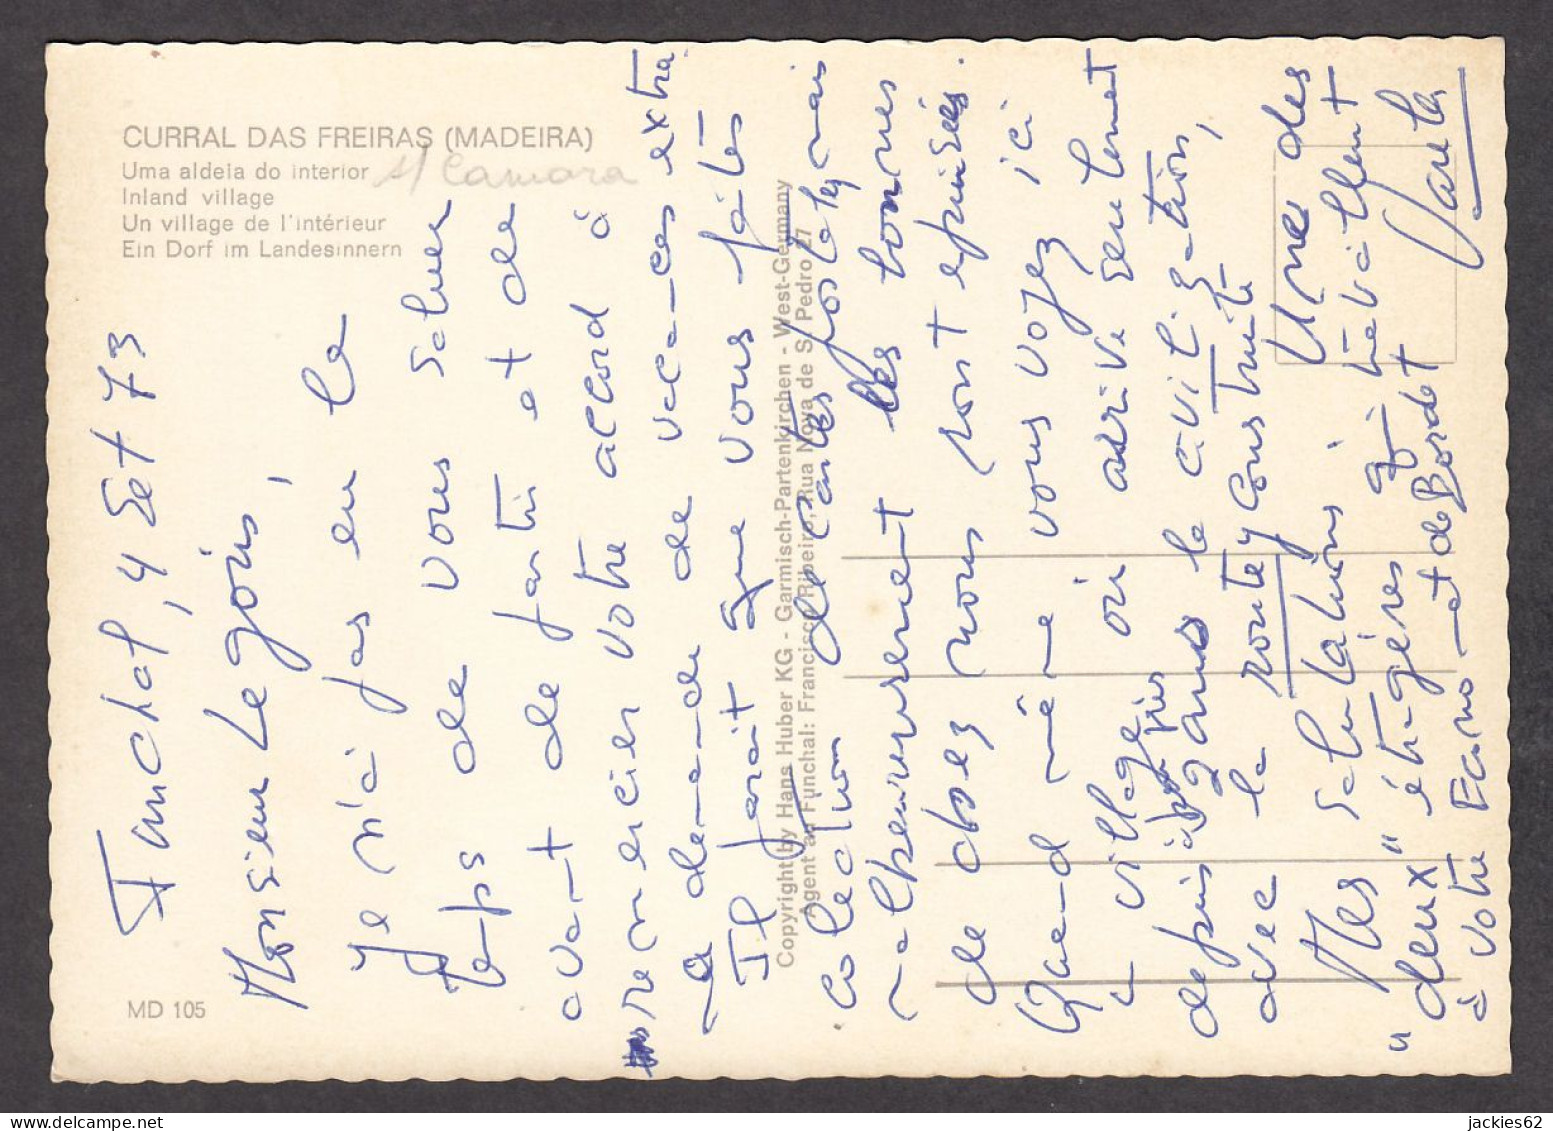 CURRAL DAS FREIRAS (MADEIRA)
Uma aldeia do interior
Inland village
Un village de l'intérieur
Ein Dorf im Landesinnern
Camara
MD 105
Copyright by Hans Huber KG - Garmisch-Partenkirchen - West-Germany
Agent au Funchal: Francisco Ribeiro, Rua Nova de S. Pedro 27
Funchal, 4 Set 73
Monsieur Legois,
Je n'ai pas eu le
temps de vous saluer
avant de partir et de
remercier votre accord à
ma demande de vacances extra.
Il parait que vous faites
colection de cartes postales, mais
malheureusement les bonnes
de chez nous sont epuisées.
Quand même vous voyez ici
un village où arrive seulement
depuis la civilization,
avec la route y construite
Mes salutations Une des
"deux" étrangéres qui travaillent
à votre Econo-et de Bordet